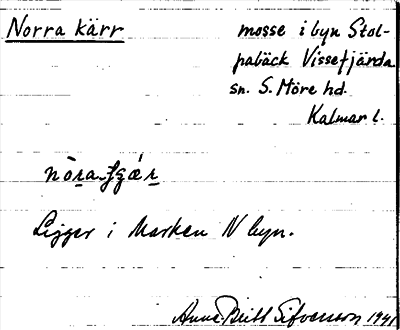 Norra Kärr
mosse i byn Stol-
pabäck Vissefjärda
sn. S. Möre hd.
Kalmar l.
Ligger i Marken N byn.
Anna-Britt Sifvensson 1941